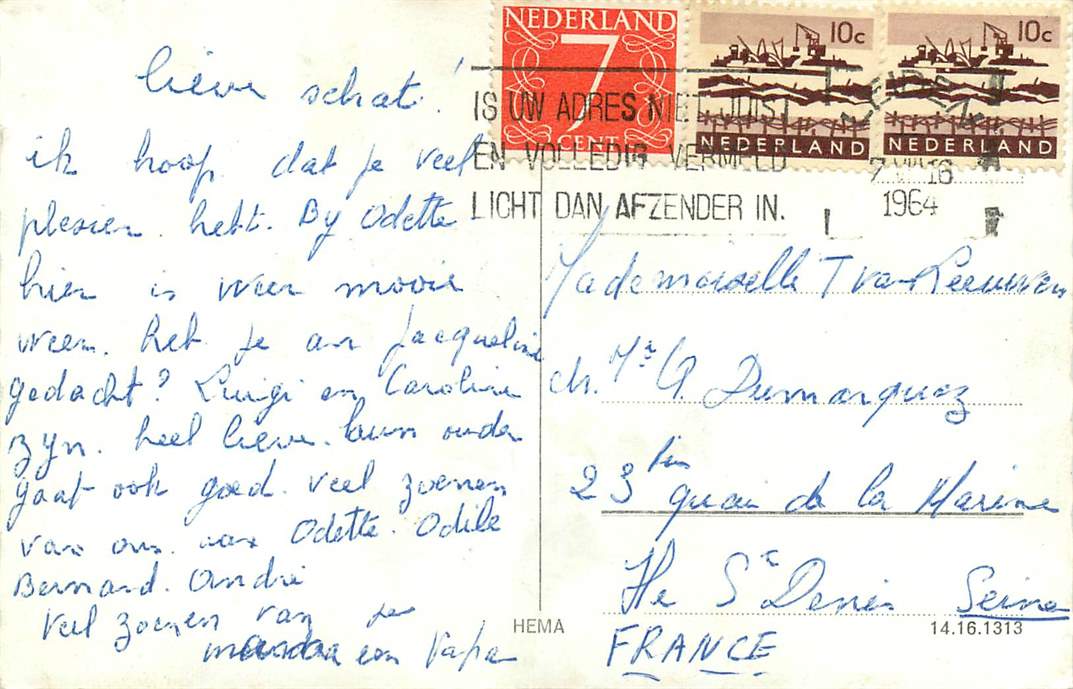 lieve schat!
ik hoop dat je veel
plesier hebt. By Odette
hier is weer mooie
weer. heb je aan Jacqueline
gedacht? Luigi en Caroline
zyn. heel lieve. hun ouder
gaat ook goed. veel zoenen
van ons. aan Odette. Odile
Bernard. André
Veel zoenen van je
en Papa
NEDERLAND
7
CENT
10c
NEDERLAND
10c
NEDERLAND
IS UW ADRES NIET JUIST
EN VOLLEDIG VERMELD
LICHT DAN AFZENDER IN.
LEIDEN
7.VIII.16
1964
Mademoiselle T van Leeuwen
ch. Mr G. Dumarquez
23 bis quai de la Marine
Ile St Denis Seine
FRANCE
HEMA
14.16.1313